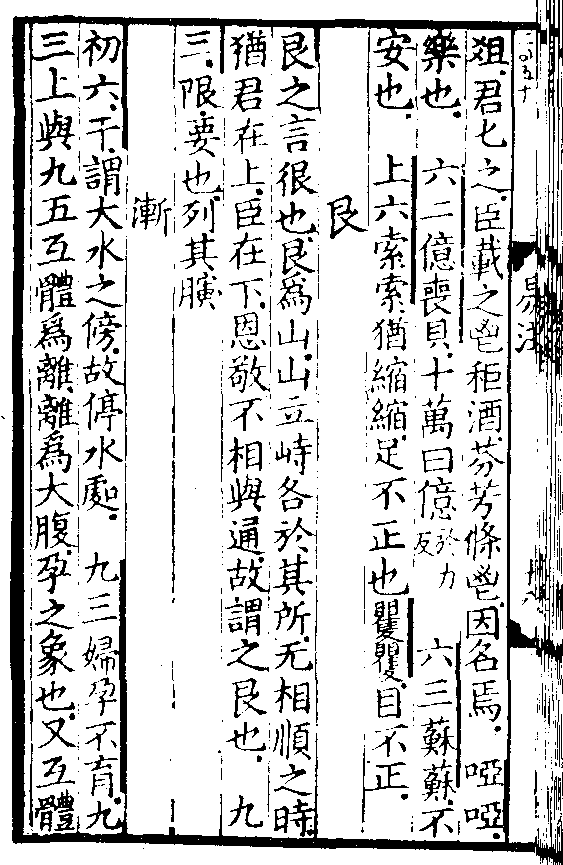 俎君匕之臣載之鬯秬酒芬芳條鬯因名焉啞啞
樂也　六二億喪貝十萬曰億於力反　六三蘇蘇不
安也　上六索索猶縮縮足不正也矍矍目不正
艮
艮之言很也艮為山山立峙各於其所无相順之時
猶君在上臣在下恩敬不相與通故謂之艮也　九
三限要也列其䐴
漸
初六干謂大水之傍故停水處　九三婦孕不育九
三上與九五互體為離離為大腹孕之象也又互體
易注